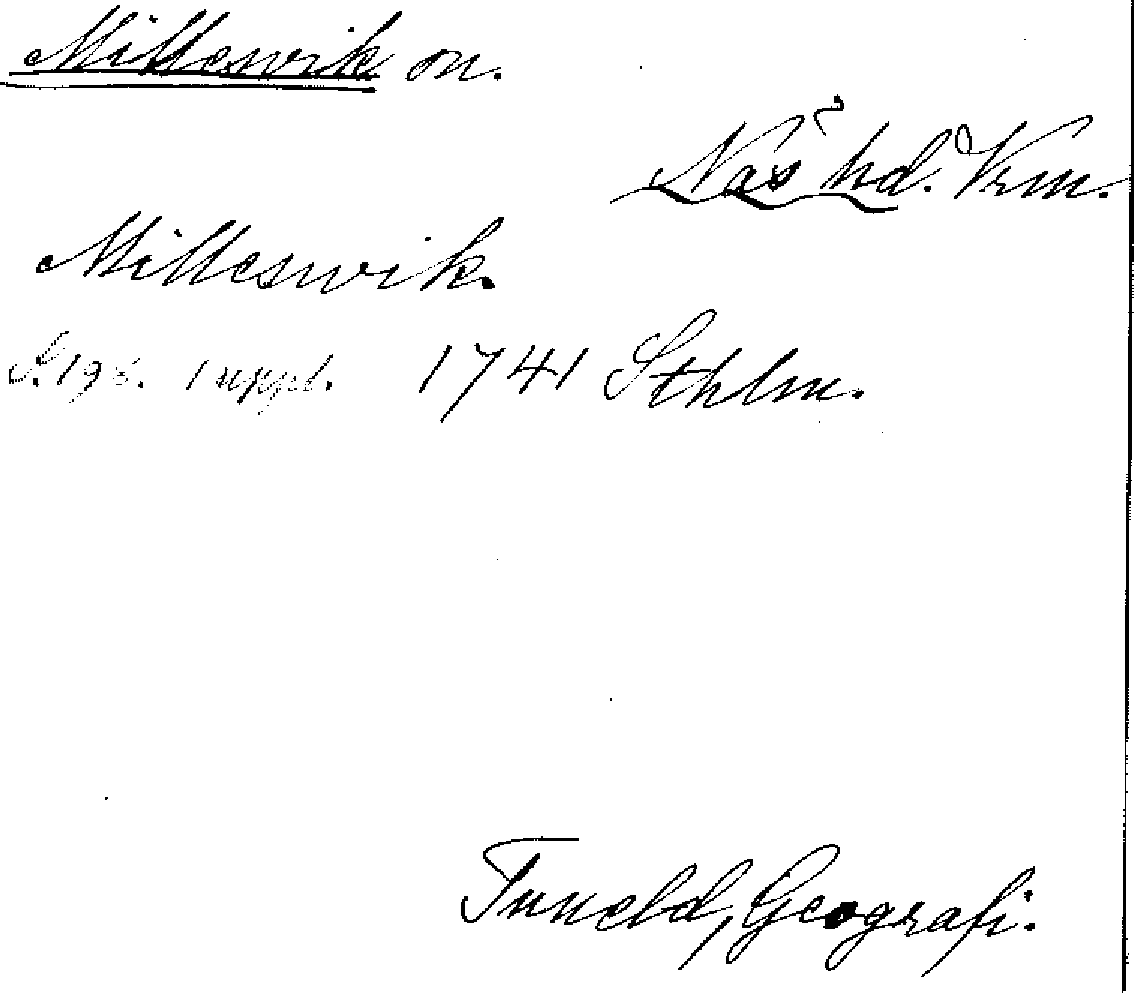 Millesvik on.
Näs hd. Vrm.
Millesvik.
S. 198. 1 uppl. 1741 Sthlm.
Tuneld, Geografi.